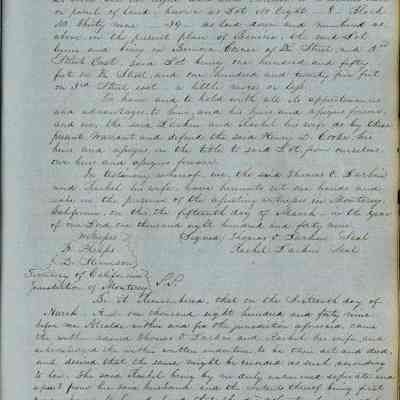 or parcel of land, known as Lot No Eight 8 Block
No thirty nine - 39 - as laid down and numbered as
above on the present plan of Benicia, the said Lot
lying and being in Benicia Corner of D. Street and 3rd
Street East, said Lot being one hundred and fifty
feet on D. Street, and one hundred and twenty five feet
on 3rd Street east a little more or less.
To have and to hold with all its appurtenances
and advantages to him, and his heirs and assigns forever,
and we, the said Larkin and Rachel his wife do by these
presents Warrant and defend the said Henry D. Cooke, his
heirs and assigns, in the title to said Lot, from ourselves
our heirs and assigns forever.
In testimony whereof we, the said Thomas O. Larkin
and Rachel his wife, have hereunto set our hands and
seals in the presence of the subscribing witnesses in Monterey,
California, on this the fifteenth day of March in the year
of our Lord one thousand eight hundred and forty nine.
Witnesses Signed, Thomas O. Larkin Seal
Rachel Larkin Seal
J. D. Stevenson
Territory of California
Jurisdiction of Monterey S.S.
Be it Remembered, that on the sixteenth day of
March, A.D. one thousand eight hundred and forty nine
before me Alcalde within and for the jurisdiction aforesaid, came
the within named Thomas O Larkin and Rachel his wife, and
acknowledged the within written indenture to be their act and deed,
and desired that the same might be recorded as such according
to law. The said Rachel being by me duly examined separate and
apart from her said husband and the contents thereof being first